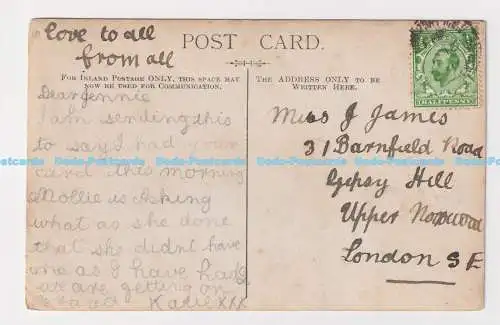 love to all
from all
POST CARD.
FOR INLAND POSTAGE ONLY, THIS SPACE MAY
NOW BE USED FOR COMMUNICATION.
THE ADDRESS ONLY TO BE
WRITTEN HERE.
HALFPENNY
Dear Jennie
I am sending this
to say I had your
card this morning
Mollie is asking
what as she done
that she didnt have
one as I have had
we are getting on
Katie xxx
Miss J James
31 Barnfield Road
Gipsy Hill
Upper Norwood
London S E
Bado-Postcards Bado-Postcards Bado-Postcards Bado-Postcards